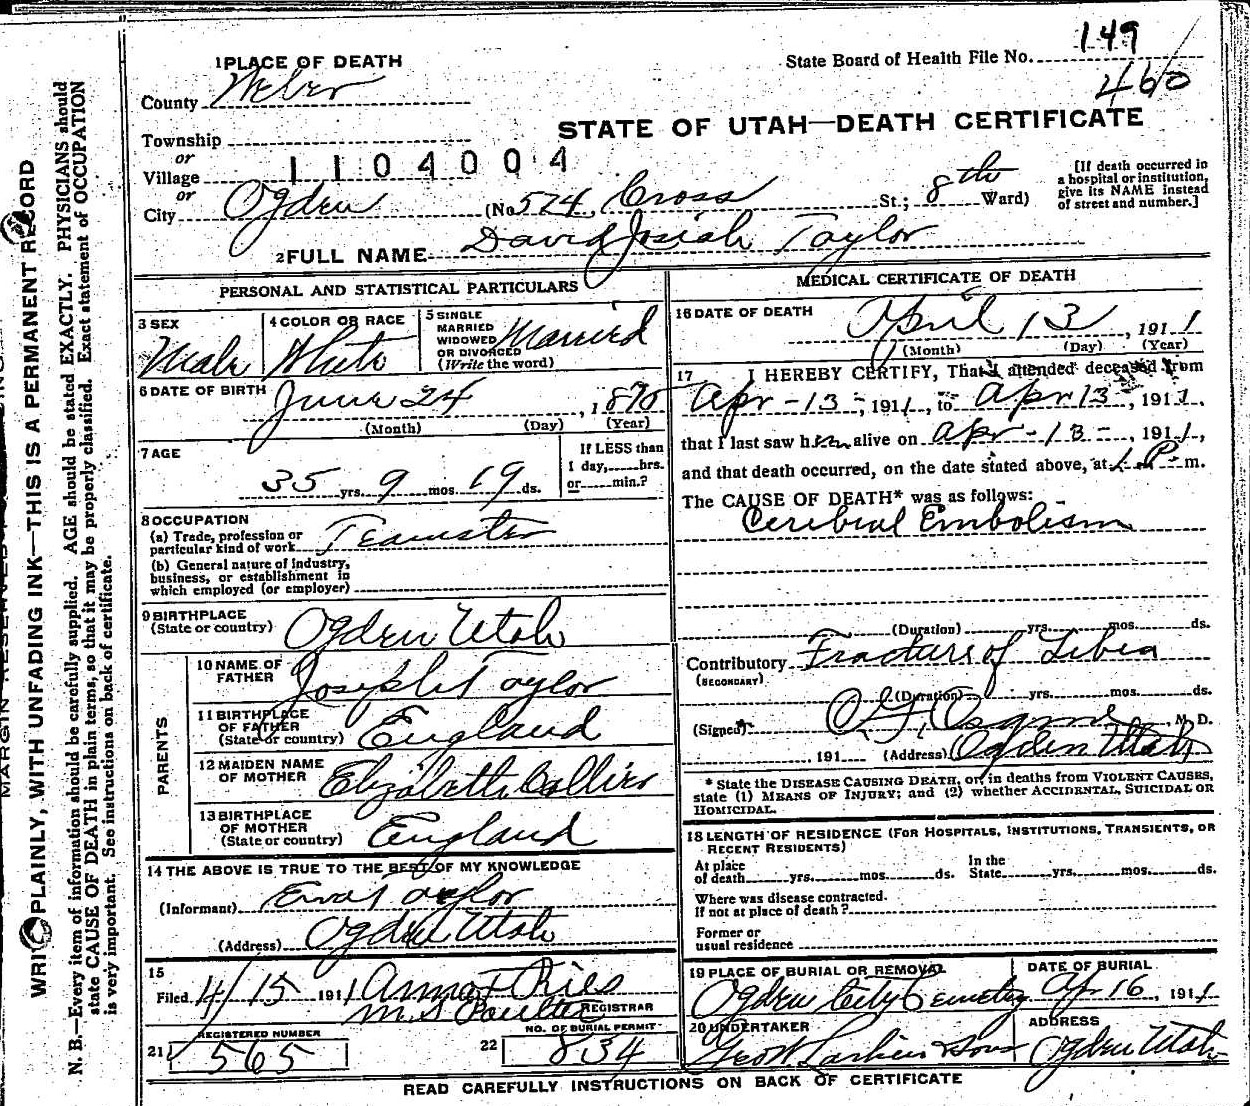 1 PLACE OF DEATH
State Board of Health File No. 149
460
County Weber
STATE OF UTAH—DEATH CERTIFICATE
Township
or
Village 1 1 0 4 0 0 4
or
City Ogden (No 574, Cross St.; 8th Ward)
[If death occurred in a hospital or institution, give its NAME instead of street and number.]
2 FULL NAME David Josiah Taylor
PERSONAL AND STATISTICAL PARTICULARS
3 SEX Male
4 COLOR OR RACE White
5 SINGLE MARRIED WIDOWED OR DIVORCED (Write the word) Married
6 DATE OF BIRTH June 24, 1870
(Month) (Day) (Year)
7 AGE 35 yrs. 9 mos. 19 ds.
If LESS than 1 day, hrs. or min.?
8 OCCUPATION
(a) Trade, profession or particular kind of work Teamster
(b) General nature of industry, business, or establishment in which employed (or employer)
9 BIRTHPLACE (State or country) Ogden Utah
PARENTS
10 NAME OF FATHER Joseph Taylor
11 BIRTHPLACE OF FATHER (State or country) England
12 MAIDEN NAME OF MOTHER Elizabeth
13 BIRTHPLACE OF MOTHER (State or country) England
14 THE ABOVE IS TRUE TO THE BEST OF MY KNOWLEDGE
(Informant) Taylor
(Address) Ogden Utah
15 Filed 4/15 1911
REGISTRAR
REGISTERED NUMBER
21 565
NO. OF BURIAL PERMIT
22 834
MEDICAL CERTIFICATE OF DEATH
16 DATE OF DEATH April 13, 1911
(Month) (Day) (Year)
17 I HEREBY CERTIFY, That I attended deceased from
Apr - 13 -, 1911, to Apr 13 -, 1911,
that I last saw him alive on Apr - 13 -, 1911,
and that death occurred, on the date stated above, at 1. P. m.
The CAUSE OF DEATH* was as follows:
Cerebral Embolism
(Duration) yrs. mos. ds.
Contributory Fracture of Tibia
(SECONDARY)
(Duration) yrs. mos. ds.
(Signed) M. D.
191 (Address) Ogden Utah
* State the DISEASE CAUSING DEATH, or, in deaths from VIOLENT CAUSES, state (1) MEANS OF INJURY; and (2) whether ACCIDENTAL, SUICIDAL OR HOMICIDAL.
18 LENGTH OF RESIDENCE (FOR HOSPITALS, INSTITUTIONS, TRANSIENTS, OR RECENT RESIDENTS)
At place of death yrs. mos. ds. In the State yrs. mos. ds.
Where was disease contracted. If not at place of death?
Former or usual residence
19 PLACE OF BURIAL OR REMOVAL Ogden City Cemetery
DATE OF BURIAL Apr 16, 1911
20 UNDERTAKER Geo W. Larkin Sons
ADDRESS Ogden Utah
READ CAREFULLY INSTRUCTIONS ON BACK OF CERTIFICATE
PLAINLY, WITH UNFADING INK—THIS IS A PERMANENT RECORD
N. B.—Every item of information should be carefully supplied. AGE should be stated EXACTLY. PHYSICIANS should
state CAUSE OF DEATH in plain terms, so that it may be properly classified. Exact statement of OCCUPATION
is very important. See instructions on back of certificate.